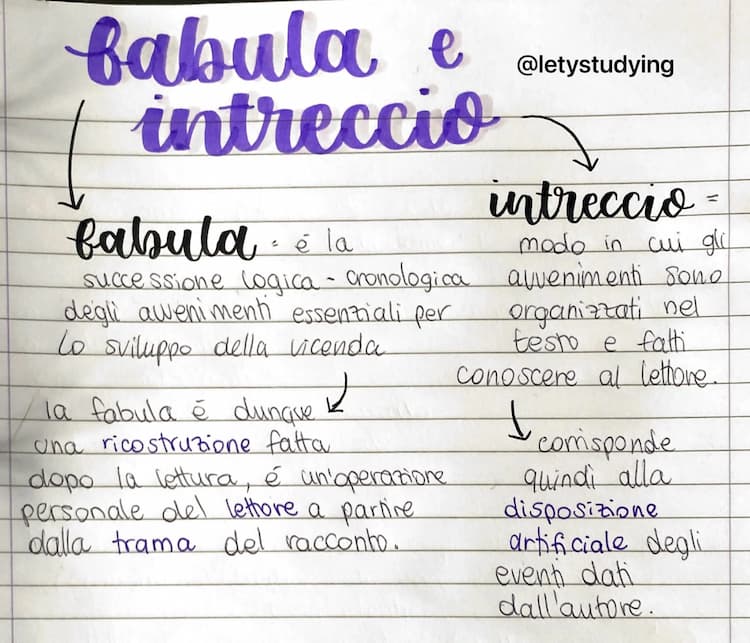 fabula e
@letystudying
intreccio
fabula = é la
successione logica - cronologica
degli avvenimenti essenziali per
lo sviluppo della vicenda
la fabula é dunque
una ricostruzione fatta
dopo la lettura, é un'operazione
personale del lettore a partire
dalla trama del racconto.
intreccio =
modo in cui gli
avvenimenti sono
organizzati nel
testo e fatti
conoscere al lettore.
corrisponde
quindi alla
disposizione
artificiale degli
eventi dati
dall'autore.